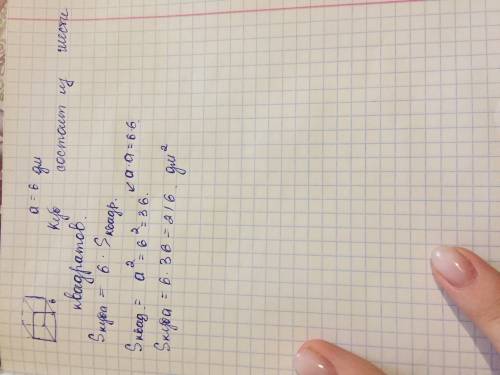 a = 6 дм
Куб состоит из шести
квадратов.
Sкуба = 6 · Sквадр.
Sквад. = a² = 6² = 36. ✓ a·a = 6·6.
Sкуба = 6 · 36 = 216 дм²
6